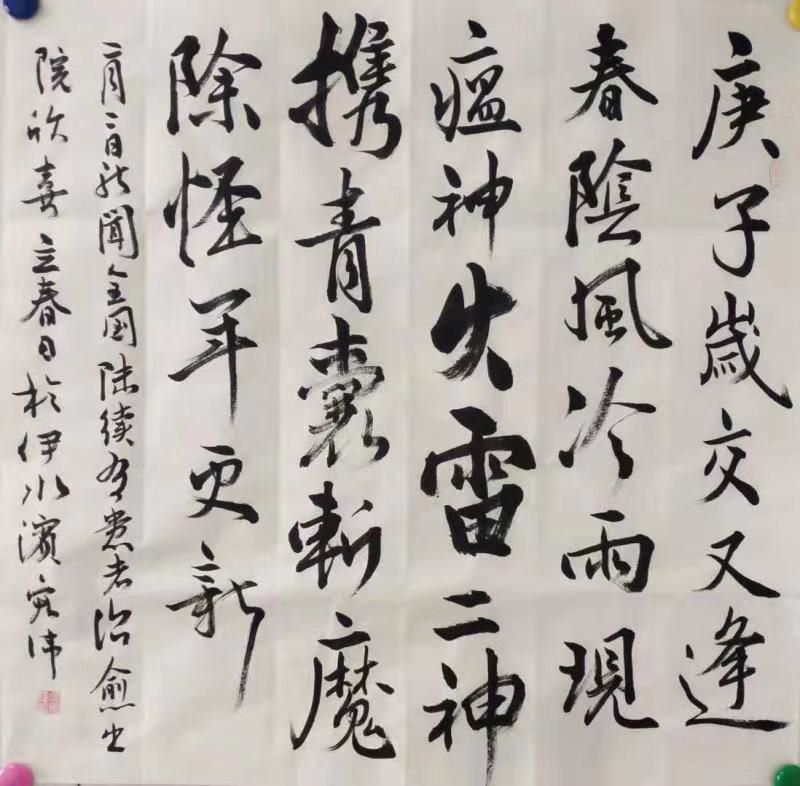 庚子歲交又逢
春陰風冷雨現
瘟神火雷二神
携青囊斬魔
除怪年更新
二月二日新聞全國陆續有患者治愈出
院欣喜立春日於伊水濱宏伟